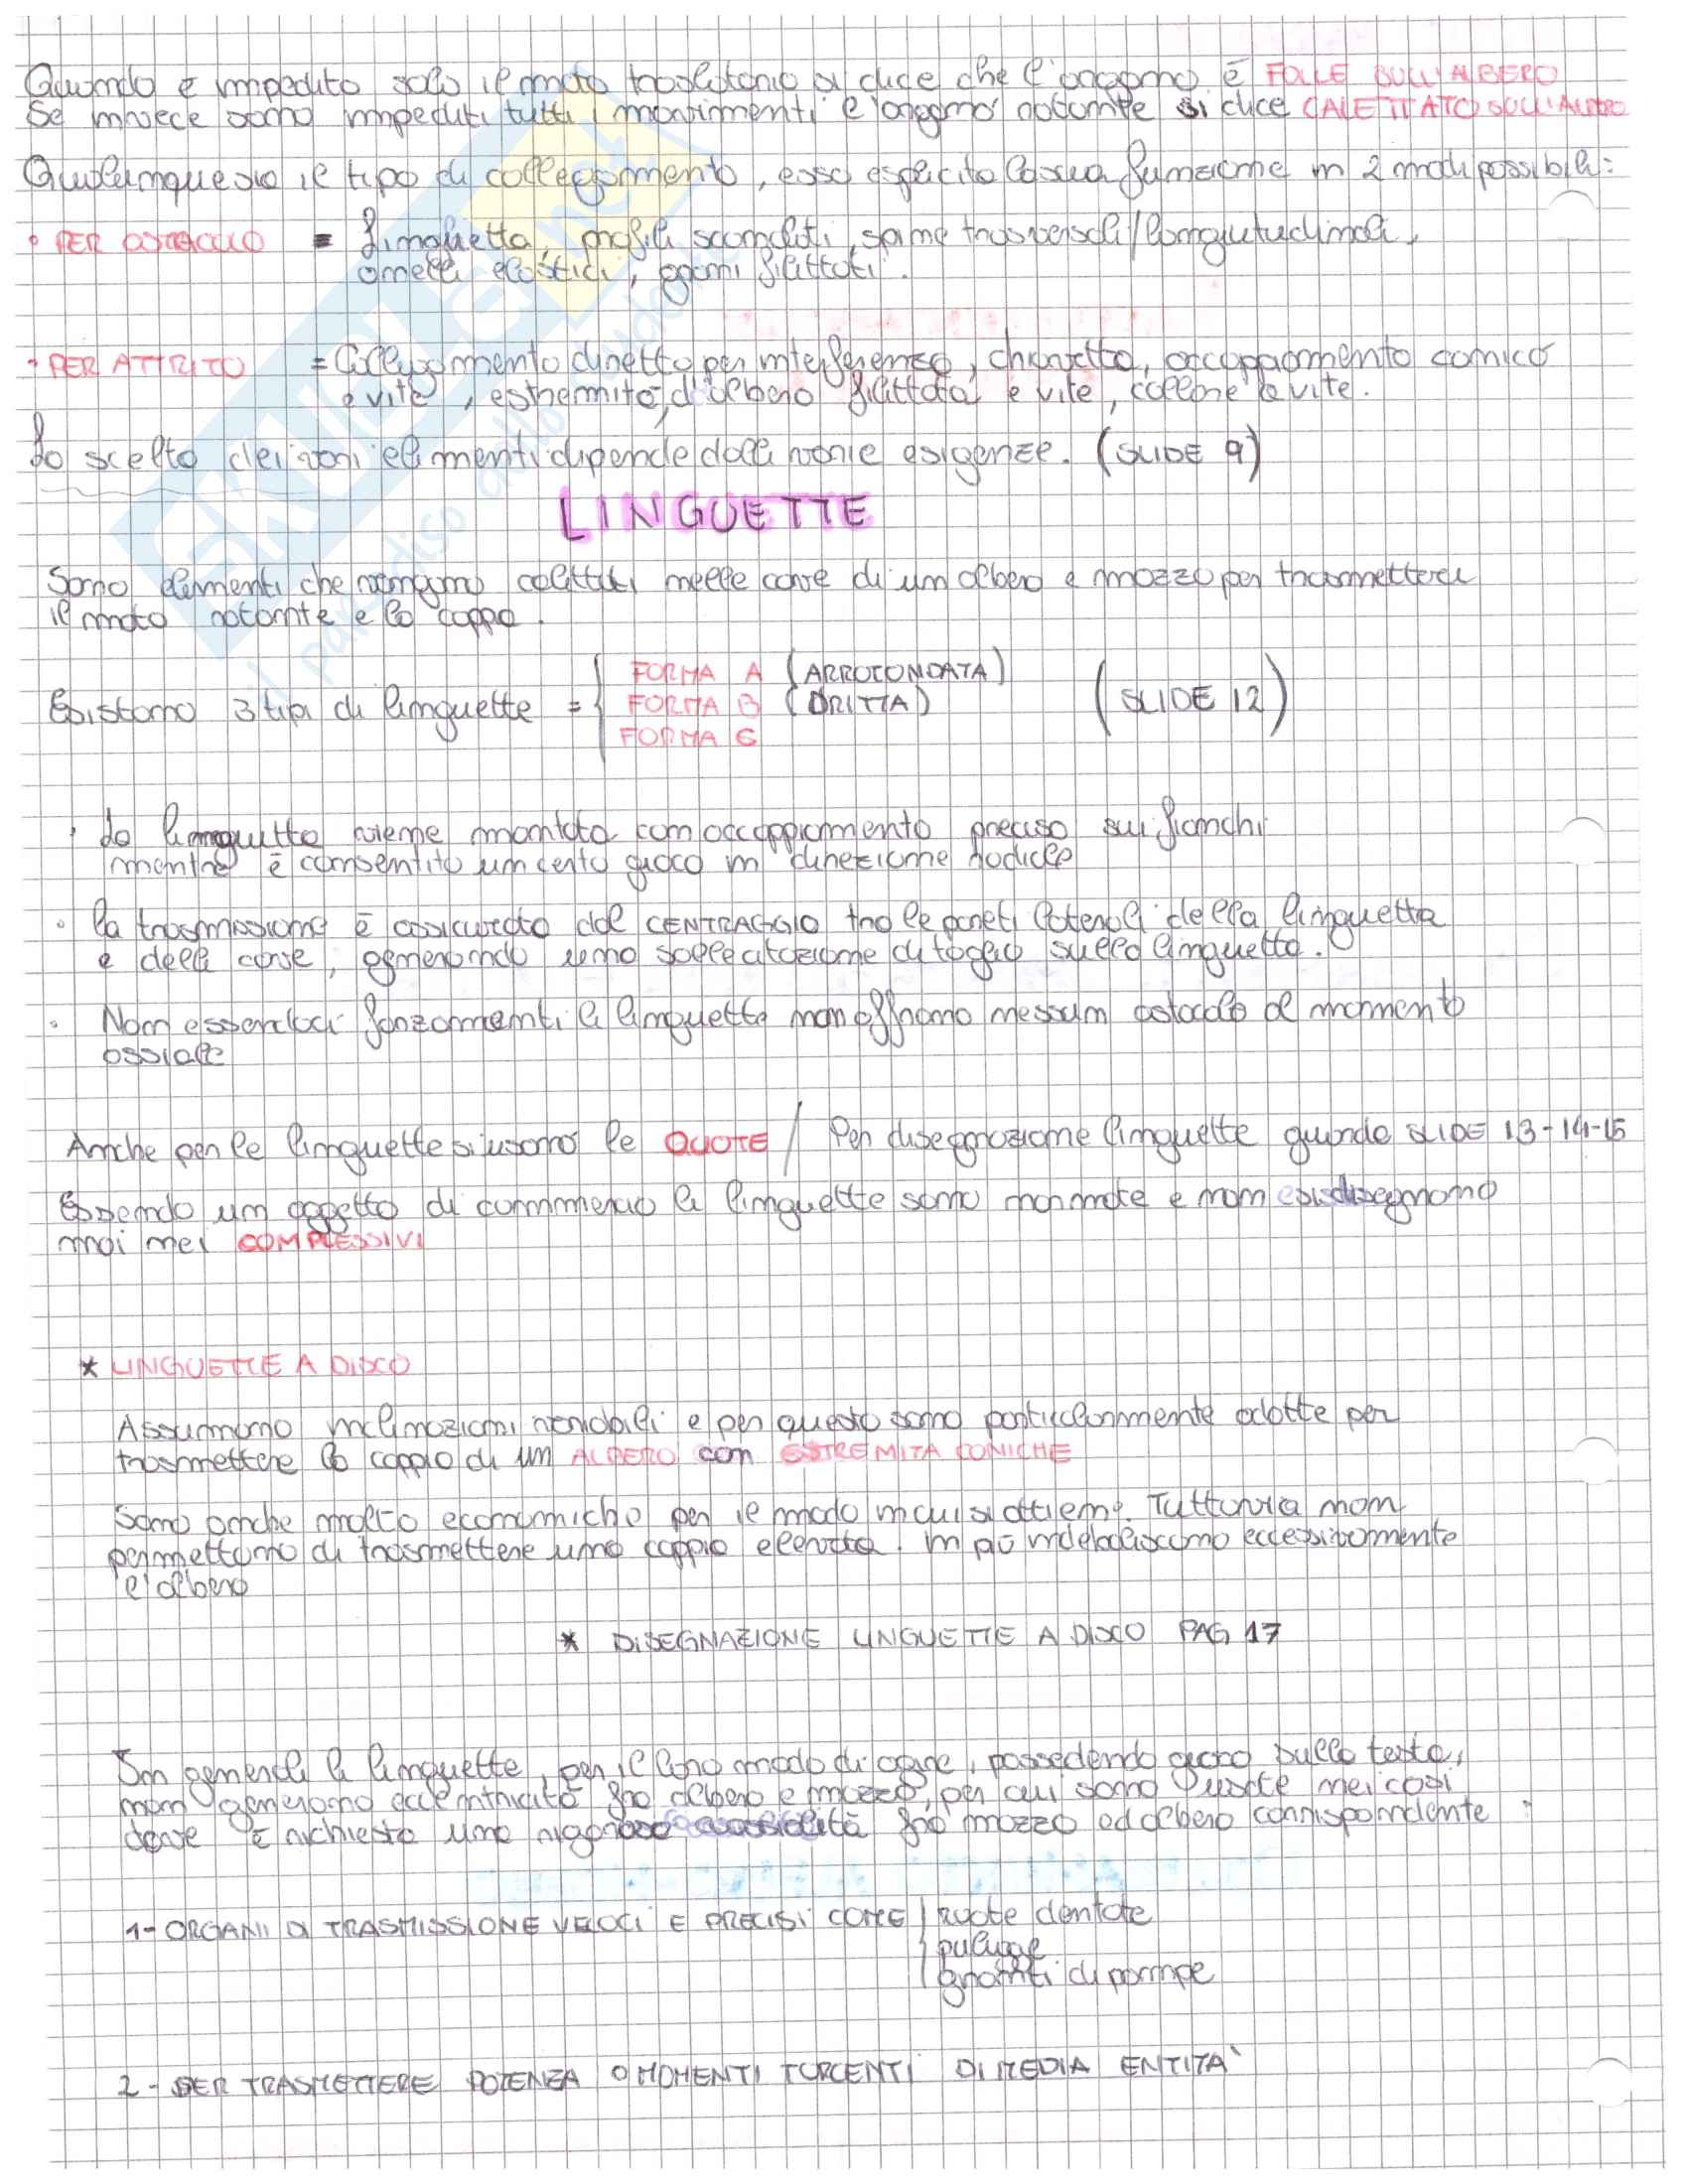 Quando è impedito solo il moto traslatorio si dice che l'organo è FOLLE SULL'ALBERO
Se invece sono impediti tutti i movimenti l'organo rotante si dice CALETTATO SULL'ALBERO
Qualunque sia il tipo di collegamento, esso esplicita la sua funzione in 2 modi possibili:
• PER OSTACOLO = Linguetta, profili scanalati, spine trasversali/longitudinali,
anelli elastici, grani filettati.
• PER ATTRITO = Collegamento diretto per interferenza, chiavetta, accoppiamento conico
e vite, estremità d'albero filettata e vite, collare e vite.
La scelta dei vari elementi dipende dalle varie esigenze. (SLIDE 9)
LINGUETTE
Sono elementi che vengono calettati nelle cave di un albero e mozzo per trasmettere
il moto rotante e la coppia.
Esistono 3 tipi di linguette = { FORMA A (ARROTONDATA) (SLIDE 12)
FORMA B (DRITTA)
FORMA C
• La linguetta viene montata con accoppiamento preciso sui fianchi
mentre è consentito un certo gioco in direzione radiale
• la trasmissione è assicurata dal CENTRAGGIO tra le pareti laterali della linguetta
e delle cave, generando una sollecitazione di taglio sulla linguetta.
• Non essendoci forzamenti le linguette non offrono nessun ostacolo al momento
assiale
Anche per le linguette si usano le QUOTE / Per disegnazione linguette guarda SLIDE 13-14-15
Essendo un oggetto di commercio le linguette sono normate e non si disegnano
mai nei COMPLESSIVI
* LINGUETTE A DISCO
Assumono inclinazioni variabili e per questo sono particolarmente adatte per
trasmettere la coppia di un ALBERO con ESTREMITA CONICHE
Sono anche molto economiche per il modo in cui si ottiene. Tuttavia non
permettono di trasmettere una coppia elevata. In più indeboliscono eccessivamente
l'albero
* DISEGNAZIONE LINGUETTE A DISCO PAG 17
In generale le linguette, per il loro modo di agire, possedendo gioco sulla testa,
non generano eccentricità fra albero e mozzo, per cui sono usate nei casi
dove è richiesta una rigorosa assialità fra mozzo ed albero corrispondente:
1- ORGANI DI TRASMISSIONE VELOCI E PRECISI COME { ruote dentate
pulegge
giranti di pompe
2- PER TRASMETTERE POTENZA O MOMENTI TORCENTI DI MEDIA ENTITA'